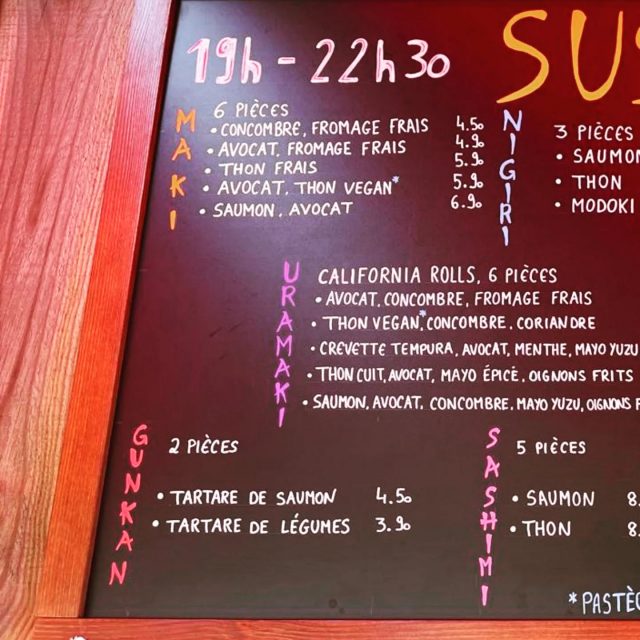 19h - 22h30
MAKI
6 PIÈCES
• CONCOMBRE, FROMAGE FRAIS 4.50
• AVOCAT, FROMAGE FRAIS 4.90
• THON FRAIS 5.90
• AVOCAT, THON VEGAN* 5.90
• SAUMON, AVOCAT 6.90
NIGIRI
3 PIÈCES
• SAUMON
• THON
• MODOKI
URAMAKI
CALIFORNIA ROLLS, 6 PIÈCES
• AVOCAT, CONCOMBRE, FROMAGE FRAIS
• THON VEGAN*, CONCOMBRE, CORIANDRE
• CREVETTE TEMPURA, AVOCAT, MENTHE, MAYO YUZU
• THON CUIT, AVOCAT, MAYO ÉPICÉ, OIGNONS FRITS
• SAUMON, AVOCAT, CONCOMBRE, MAYO YUZU, OIGNONS
GUNKAN
2 PIÈCES
• TARTARE DE SAUMON 4.50
• TARTARE DE LÉGUMES 3.90
SASHIMI
5 PIÈCES
• SAUMON 8.
• THON 8.